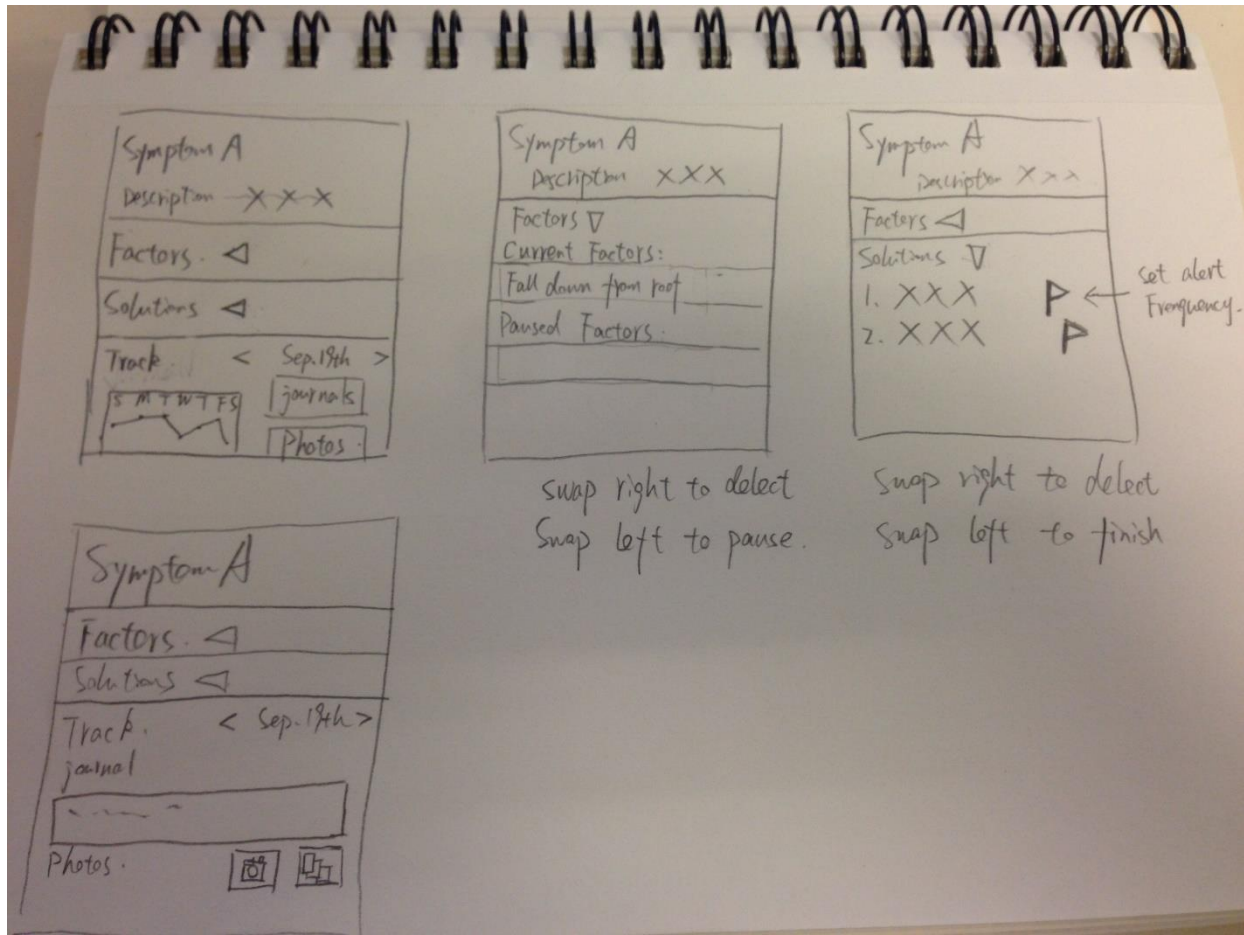 Symptom A
Description X X X
Factors.
Solutions
Track. < Sep. 19th >
S M T W T F S
journals
Photos.
Symptom A
Description XXX
Factors
Current Factors:
Fall down from roof
Paused Factors.
swap right to delect
Swap left to pause.
Symptom A
Description XXX
Factors
Solutions
1. XXX
2. XXX
set alert
Frenquency.
Swap right to delect
Swap left to finish
Symptom A
Factors.
Solutions
Track. < Sep. 19th >
journal
Photos.